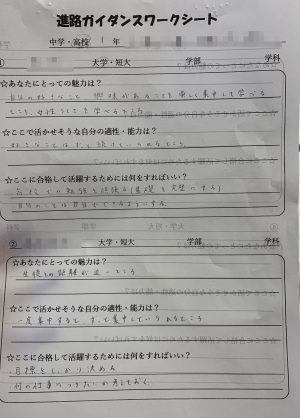 進路ガイダンスワークシート
中学・高校 1年
① 大学・短大 学部 学科
☆あなたにとっての魅力は?
自分の好きなこと 興味があることを楽しく集中して学べる
ところ、女性らしさを学べるところ
☆ここで活かせそうな自分の適性・能力は?
好きなことはずっと続けていられるところ
☆ここに合格して活躍するためには何をすればいい?
高校での勉強を頑張る(基礎を完璧にする)
自分のことは自分でできるようにする
② 大学・短大 学部 学科
☆あなたにとっての魅力は?
生徒との距離が近いところ
☆ここで活かせそうな自分の適性・能力は?
一度集中すると、ずっと集中していられるところ
☆ここに合格して活躍するためには何をすればいい?
・目標をしっかり決める
・何の仕事につきたいか考えておく